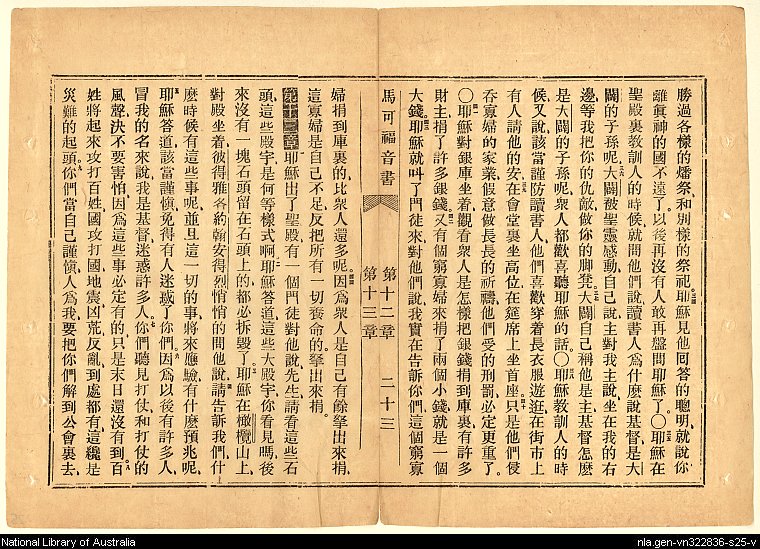 勝過各樣的燔祭和別樣的祭祀耶穌見他回答的聰明就說你
離眞神的國不遠了以後再沒有人敢再盤問耶穌了〇耶穌在
聖殿裏敎訓人的時候就問他們說讀書人爲什麽說基督是大
闢的子孫呢大闢被聖靈感動自己說主對我主說坐在我的右
邊等我把你的仇敵做你的脚凳大闢自己稱他是主基督怎麽
是大闢的子孫呢衆人都歡喜聽耶穌的話〇耶穌敎訓人的時
候又說該當謹防讀書人他們喜歡穿着長衣服遊逛在街市上
有人請他的安在會堂裏坐高位在筵席上坐首座只是他們侵
吞寡婦的家業假意做長長的祈禱他們受的刑罰必定更重了。
〇耶穌對銀庫坐着觀看衆人是怎樣把銀錢捐到庫裏有許多
財主捐了許多銀錢又有個窮寡婦來捐了兩個小錢就是一個
大錢耶穌就叫了門徒來對他們說我實在告訴你們這個窮寡
馬可福音書 第十二章 第十三章 二十三
婦捐到庫裏的比衆人還多呢因爲衆人是自己有餘拏出來捐
這寡婦是自己不足反把所有一切養命的拏出來捐。
第十三章耶穌出了聖殿有一個門徒對他說先生請看這些石
頭這些殿宇是何等樣式啊耶穌答道這些大殿宇你看見嗎後
來沒有一塊石頭留在石頭上的都必拆毀了耶穌在橄欖山上
對殿坐着彼得雅各約翰安得烈悄悄的問他說請告訴我們什
麽時候有這些事呢並且這一切的事將來應驗有什麽預兆呢
耶穌答道該當謹愼免得有人迷惑了你們因爲以後有許多人
冒我的名來說我是基督迷惑許多人你們聽見打仗和打仗的
風聲決不要害怕因爲這些事必定有的只是末日還沒有到百
姓將起來攻打百姓國攻打國地震凶荒反亂到處都有這纔是
災難的起頭你們當自己謹愼人爲我要把你們解到公會裏去
National Library of Australia
nla.gen-vn322836-s25-v